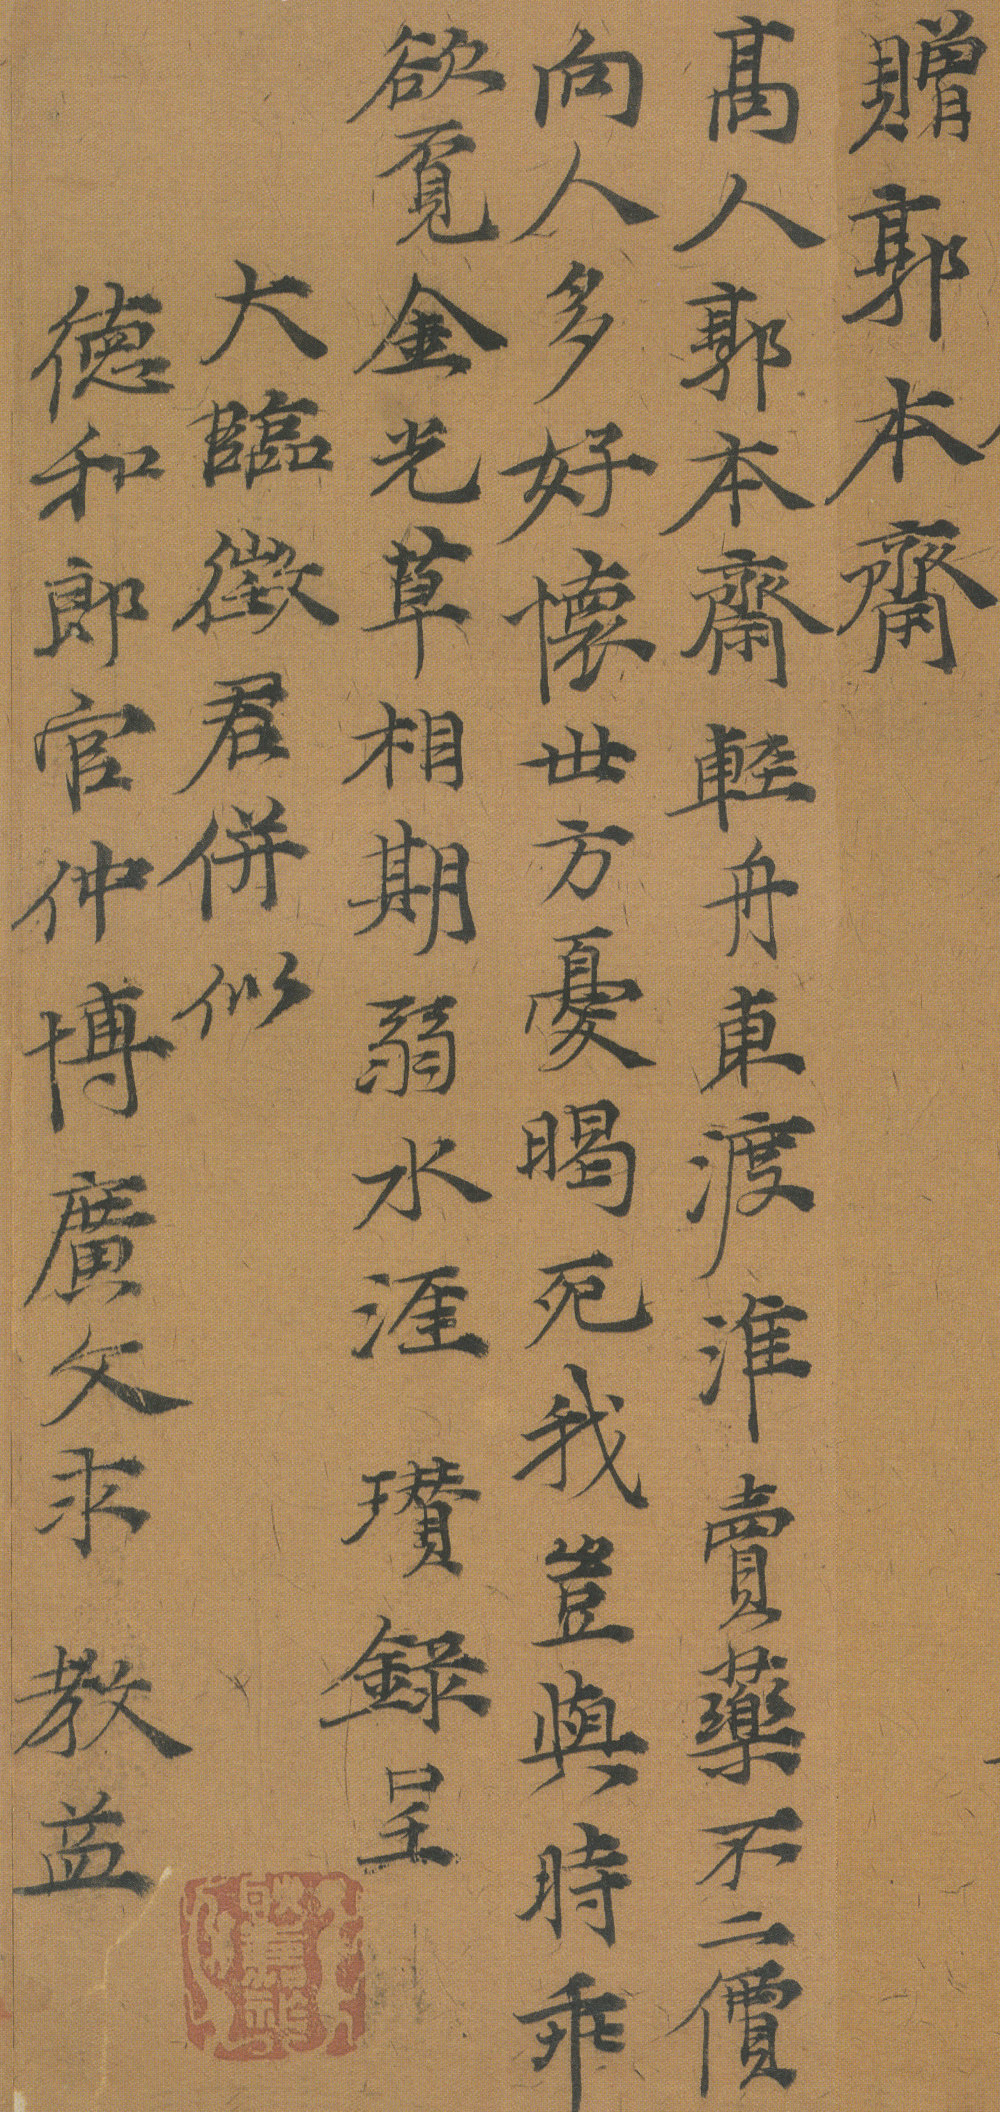 贈郭本齋
高人郭本齋輕舟車渡淮賣藥不二價
向人多好懷世方憂暍死我豈與時乖
欲覓金光草相期弱水涯 瓚錄呈
大臨徵君併似
德和郎官仲博廣文求 教益